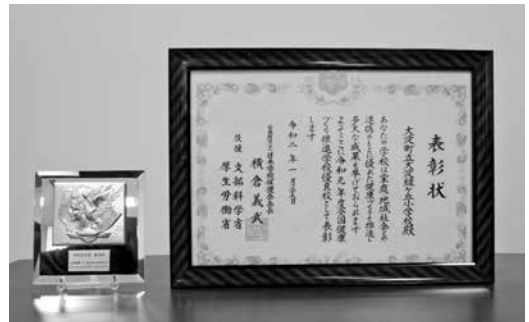 表彰状
大淀町立大淀緑ヶ丘小学校殿
あなたの学校は家庭、地域社会との
連携のもとに優れた健康づくりを推進し
多大な成果を挙げておられます
よってここに令和元年度全国健康
づくり推進学校優良校として表彰
します
令和二年一月
公益財団法人日本学校保健会会長
横倉義武
後援 文部科学省
厚生労働省